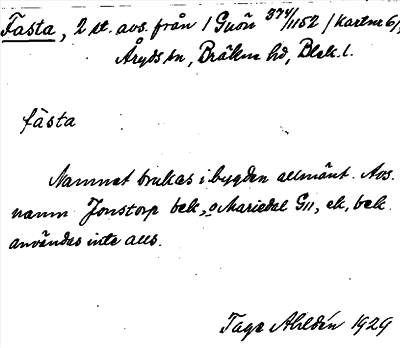 Fästa, 2 st. avs. från 1 Guön 374/1152 /kartnr 61,
Åryds sn, Bräkne hd, Blek. l.
fästa
Namnet brukas i bygden allmänt. Avs.
namn Jonstorp bek., o Mariedal G11, ek, bek.
användas inte alls.
Tage Ahldén 1929